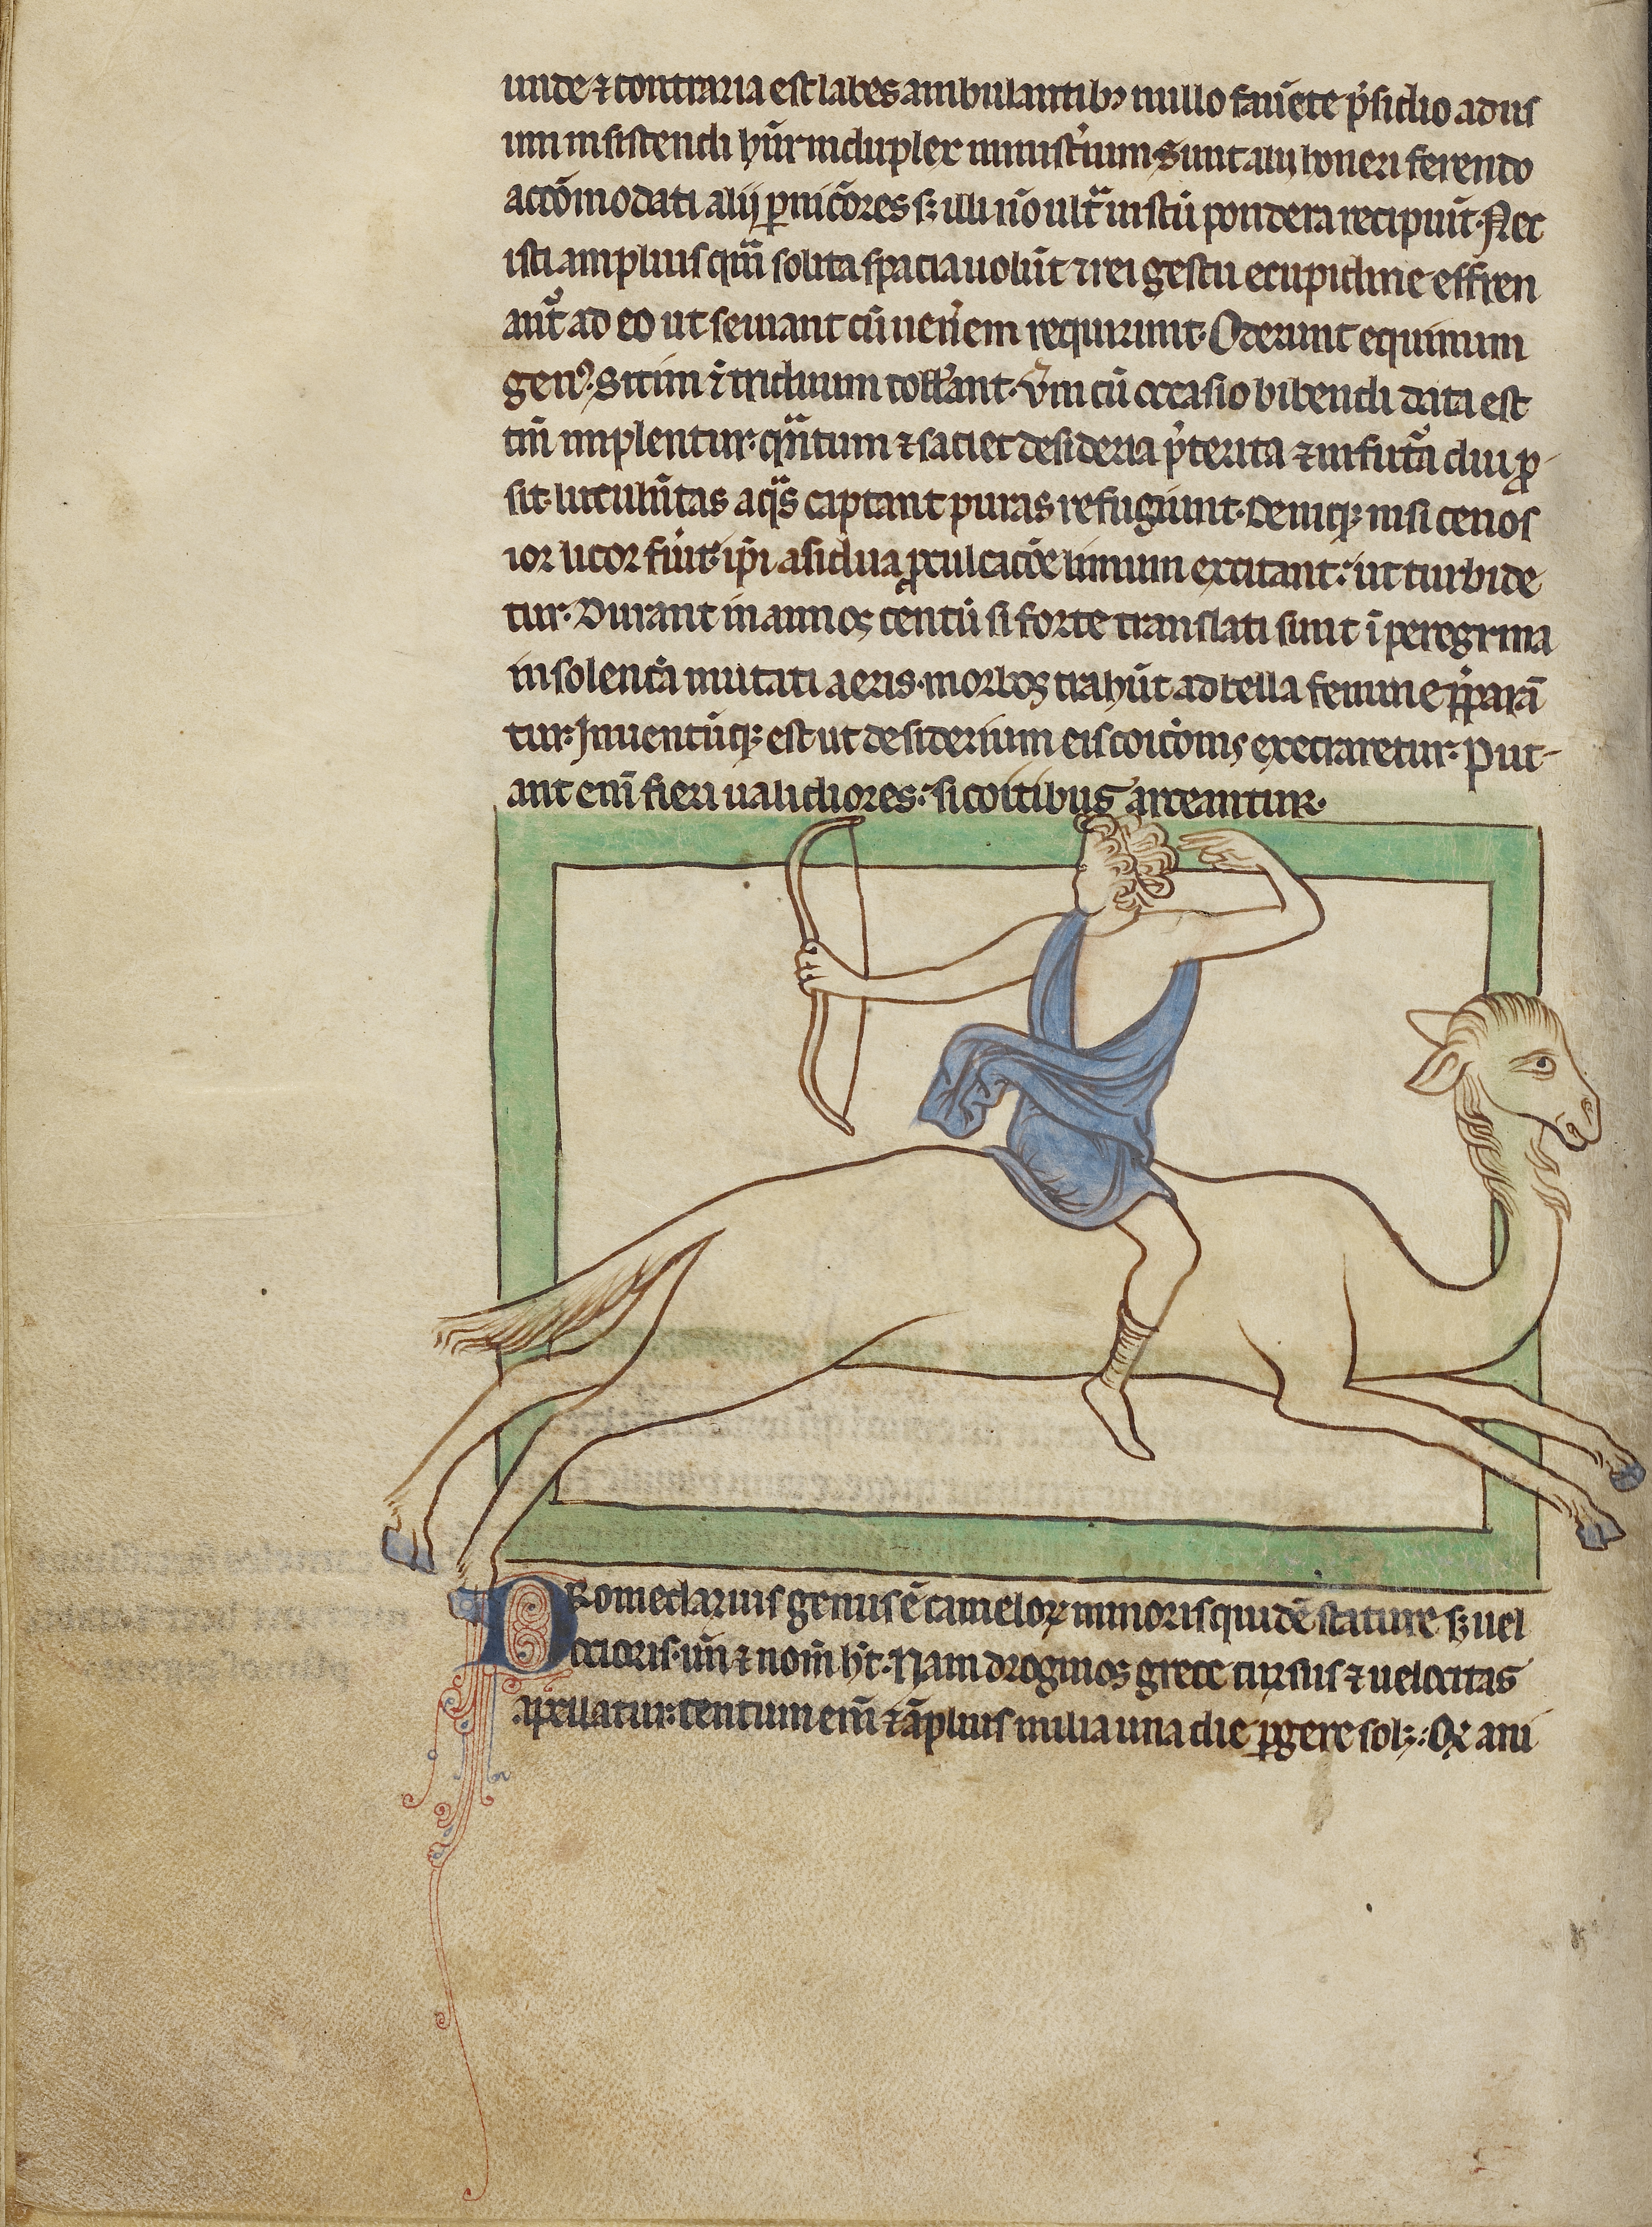 unde ⁊ contraria est labes ambulantibꝫ nullo fauēte p̾sidio ad nis
um insistendi hūt̃ induplex minist̾ium. Sunt alii honeri ferendo
accōmodati alij ꝑnicōres sꝫ illi nō ult̃ instū pondera recipiūt. Nec
isti amplius qͣm solita spacia uolūt ⁊ rei gestu e cupidine effren
ant̃ ad eo ut seuiant cū uen̾em requirunt. Oderunt equinum
genꝰ. Sitim ī triduum toll̾ant. Vm̃ cū occasio bibendi data est
tm̃ implentur. qͣntum ⁊ saciet desideria p̾terita ⁊ in futͣ diu ꝓ-
sit. lutul̾utas aqͣs captant puras refugiunt. Deniqꝫ nisi cenos
ior licor fūit. ip̃i asidua ꝓculcacōe limum excitant. ut turbide
tur. Durant in annos centū si forte translati sunt ī peregrina
insolencͥa mutati aeris. morbos trahūt ad bella femine p̾parā
tur. Inuentūqꝫ est ut desiderium eis coicͥonis execraretur. Put-
ant enī fieri ualidiores. si coitibus arceantur.
Dromedarius genus ē cameloꝝ minoris quidē stature sꝫ uel
ocioris. un̄ ⁊ nom̄ ht̄. Nam drogmos grece cursus ⁊ uelocitas
apellatur. centum enī ⁊ āplius milia una die ꝑgere solꝫ. Qꝫ ani